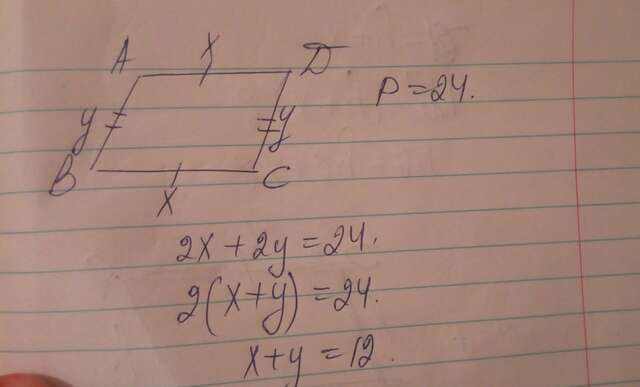 A x D
P=24.
y y
B x C
2x+2y=24.
2(x+y)=24.
x+y=12.